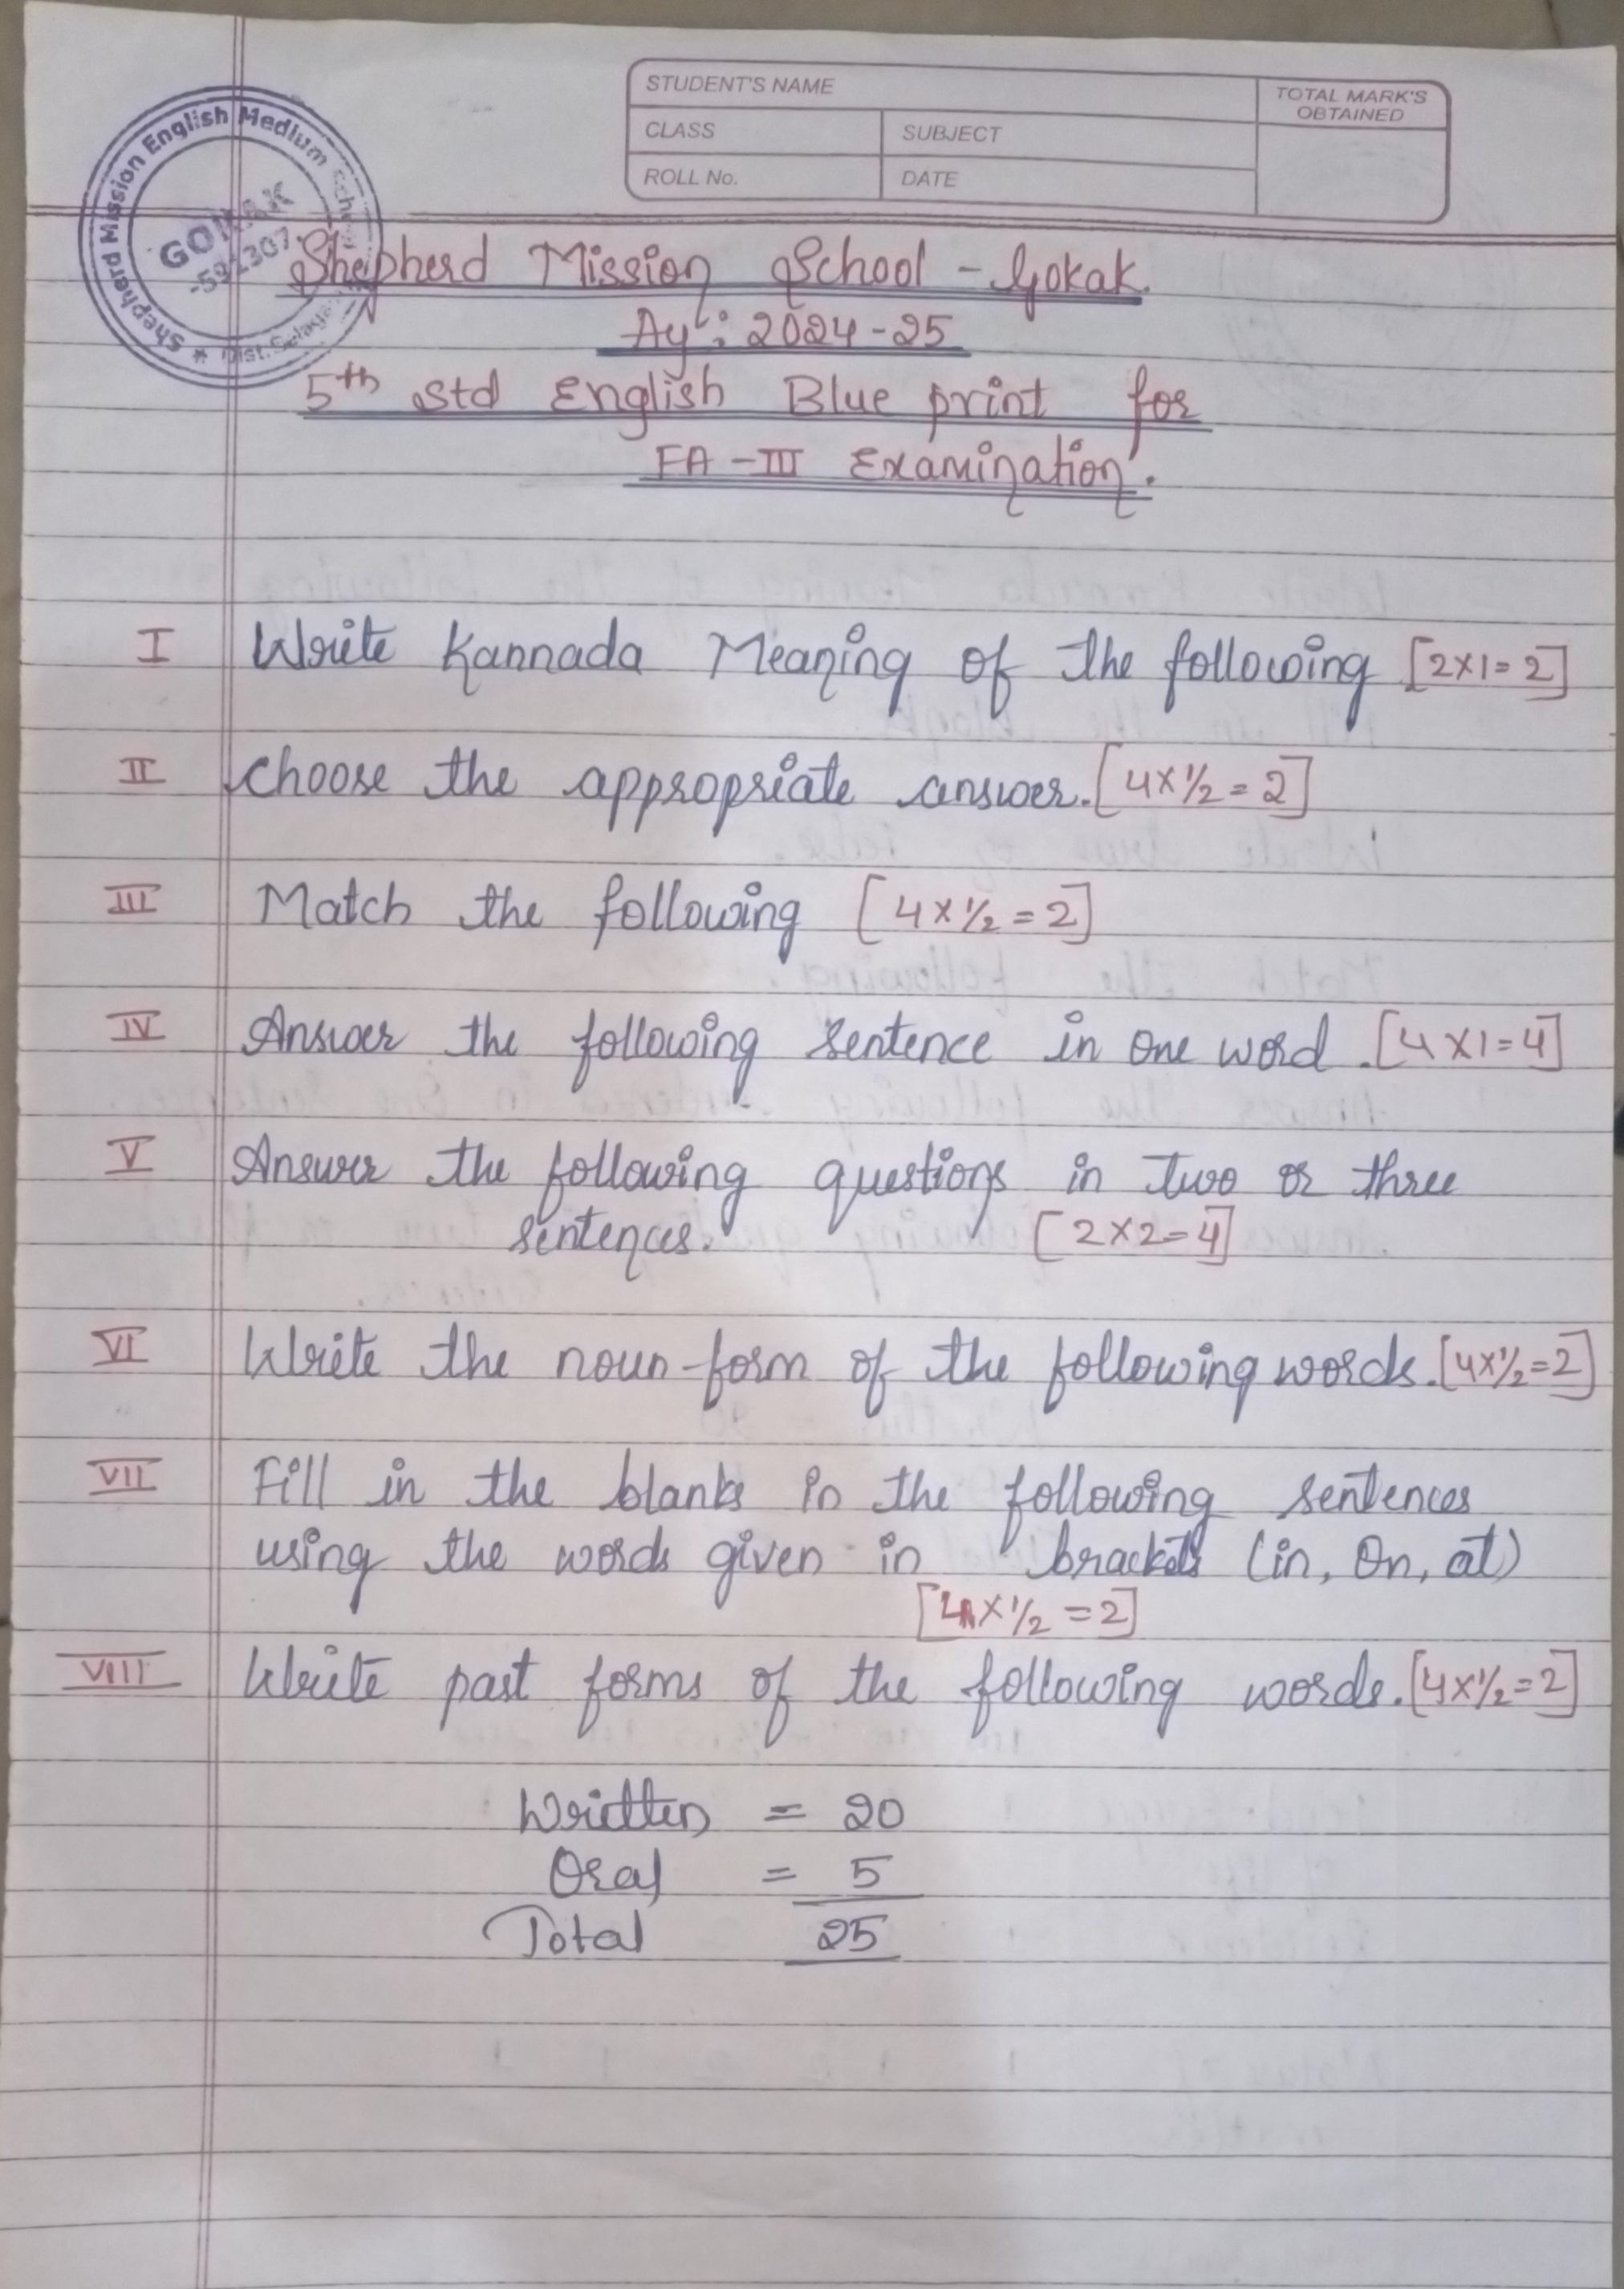 Shepherd Mission English Medium School
GOKAK
-591307.
* Dist. Belagavi
STUDENT'S NAME
TOTAL MARK'S
OBTAINED
CLASS
SUBJECT
ROLL No.
DATE
Shepherd Mission School - Gokak.
Ay : 2024-25
5th std English Blue print for
FA - III Examination.
I Write Kannada Meaning of the following [2x1=2]
II choose the appropriate answer. [4x1/2=2]
III Match the following [4x1/2=2]
IV Answer the following sentence in one word. [4x1=4]
V Answer the following questions in two or three
sentences. [2x2=4]
VI Write the noun-form of the following words. [4x1/2=2]
VII Fill in the blanks in the following sentences
using the words given in brackets (in, on, at)
[4x1/2=2]
VIII Write past forms of the following words. [4x1/2=2]
Written = 20
Oral = 5
Total 25